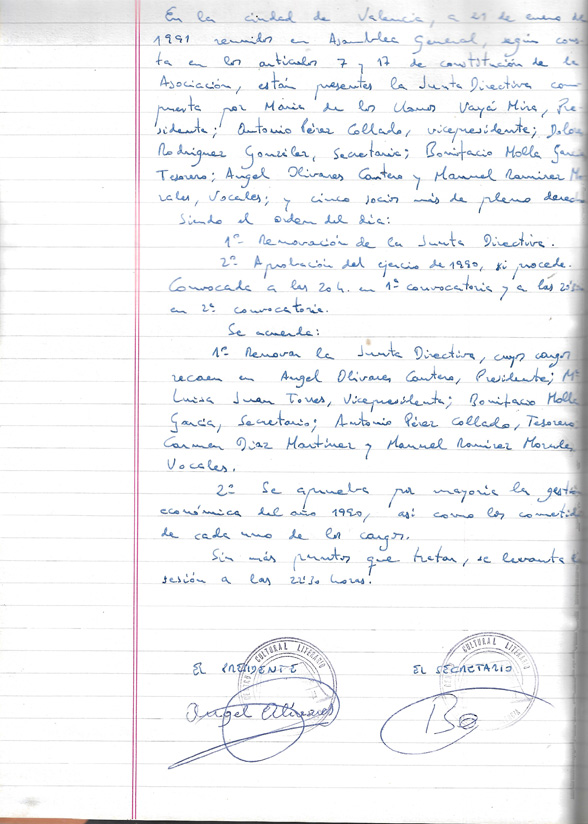 En la ciudad de Valencia, a 21 de enero de
1991 reunidos en Asamblea General, según cons
ta en los artículos 7 y 17 de constitución de la
Asociación, están presentes la Junta Directiva com
puesta por María de los Llanos Vayá Mira, Pre
sidenta; Antonio Pérez Collado, vicepresidente; Dolores
Rodríguez González, Secretaria; Bonifacio Molla García
Tesorero; Angel Olivares Cantero y Manuel Ramírez Mo
rales, Vocales; y cinco socios más de pleno derecho
Siendo el orden del día:
1º Renovación de la Junta Directiva.
2º Aprobación del ejercio de 1990, si procede.
Convocada a las 20 h. en 1ª convocatoria y a las
en 2ª convocatoria.
Se acuerda:
1º Renovar la Junta Directiva, cuyos cargos
recaen en Angel Olivares Cantero, Presidente; Mª
Luisa Juan Torres, Vicepresidenta; Bonifacio Molla
García, Secretario; Antonio Pérez Collado, Tesorero
Carmen Díaz Martínez y Manuel Ramírez Morales
Vocales.
2º Se aprueba por mayoría la gestión
económica del año 1990, así como los cometid
de cada uno de los cargos.
Sin más puntos que tratar, se levanta la
sesión a las 22:30 horas.
EL PRESIDENTE EL SECRETARIO
CULTURAL LITERARIO CULTURAL LITERARIO
Angel Olivares